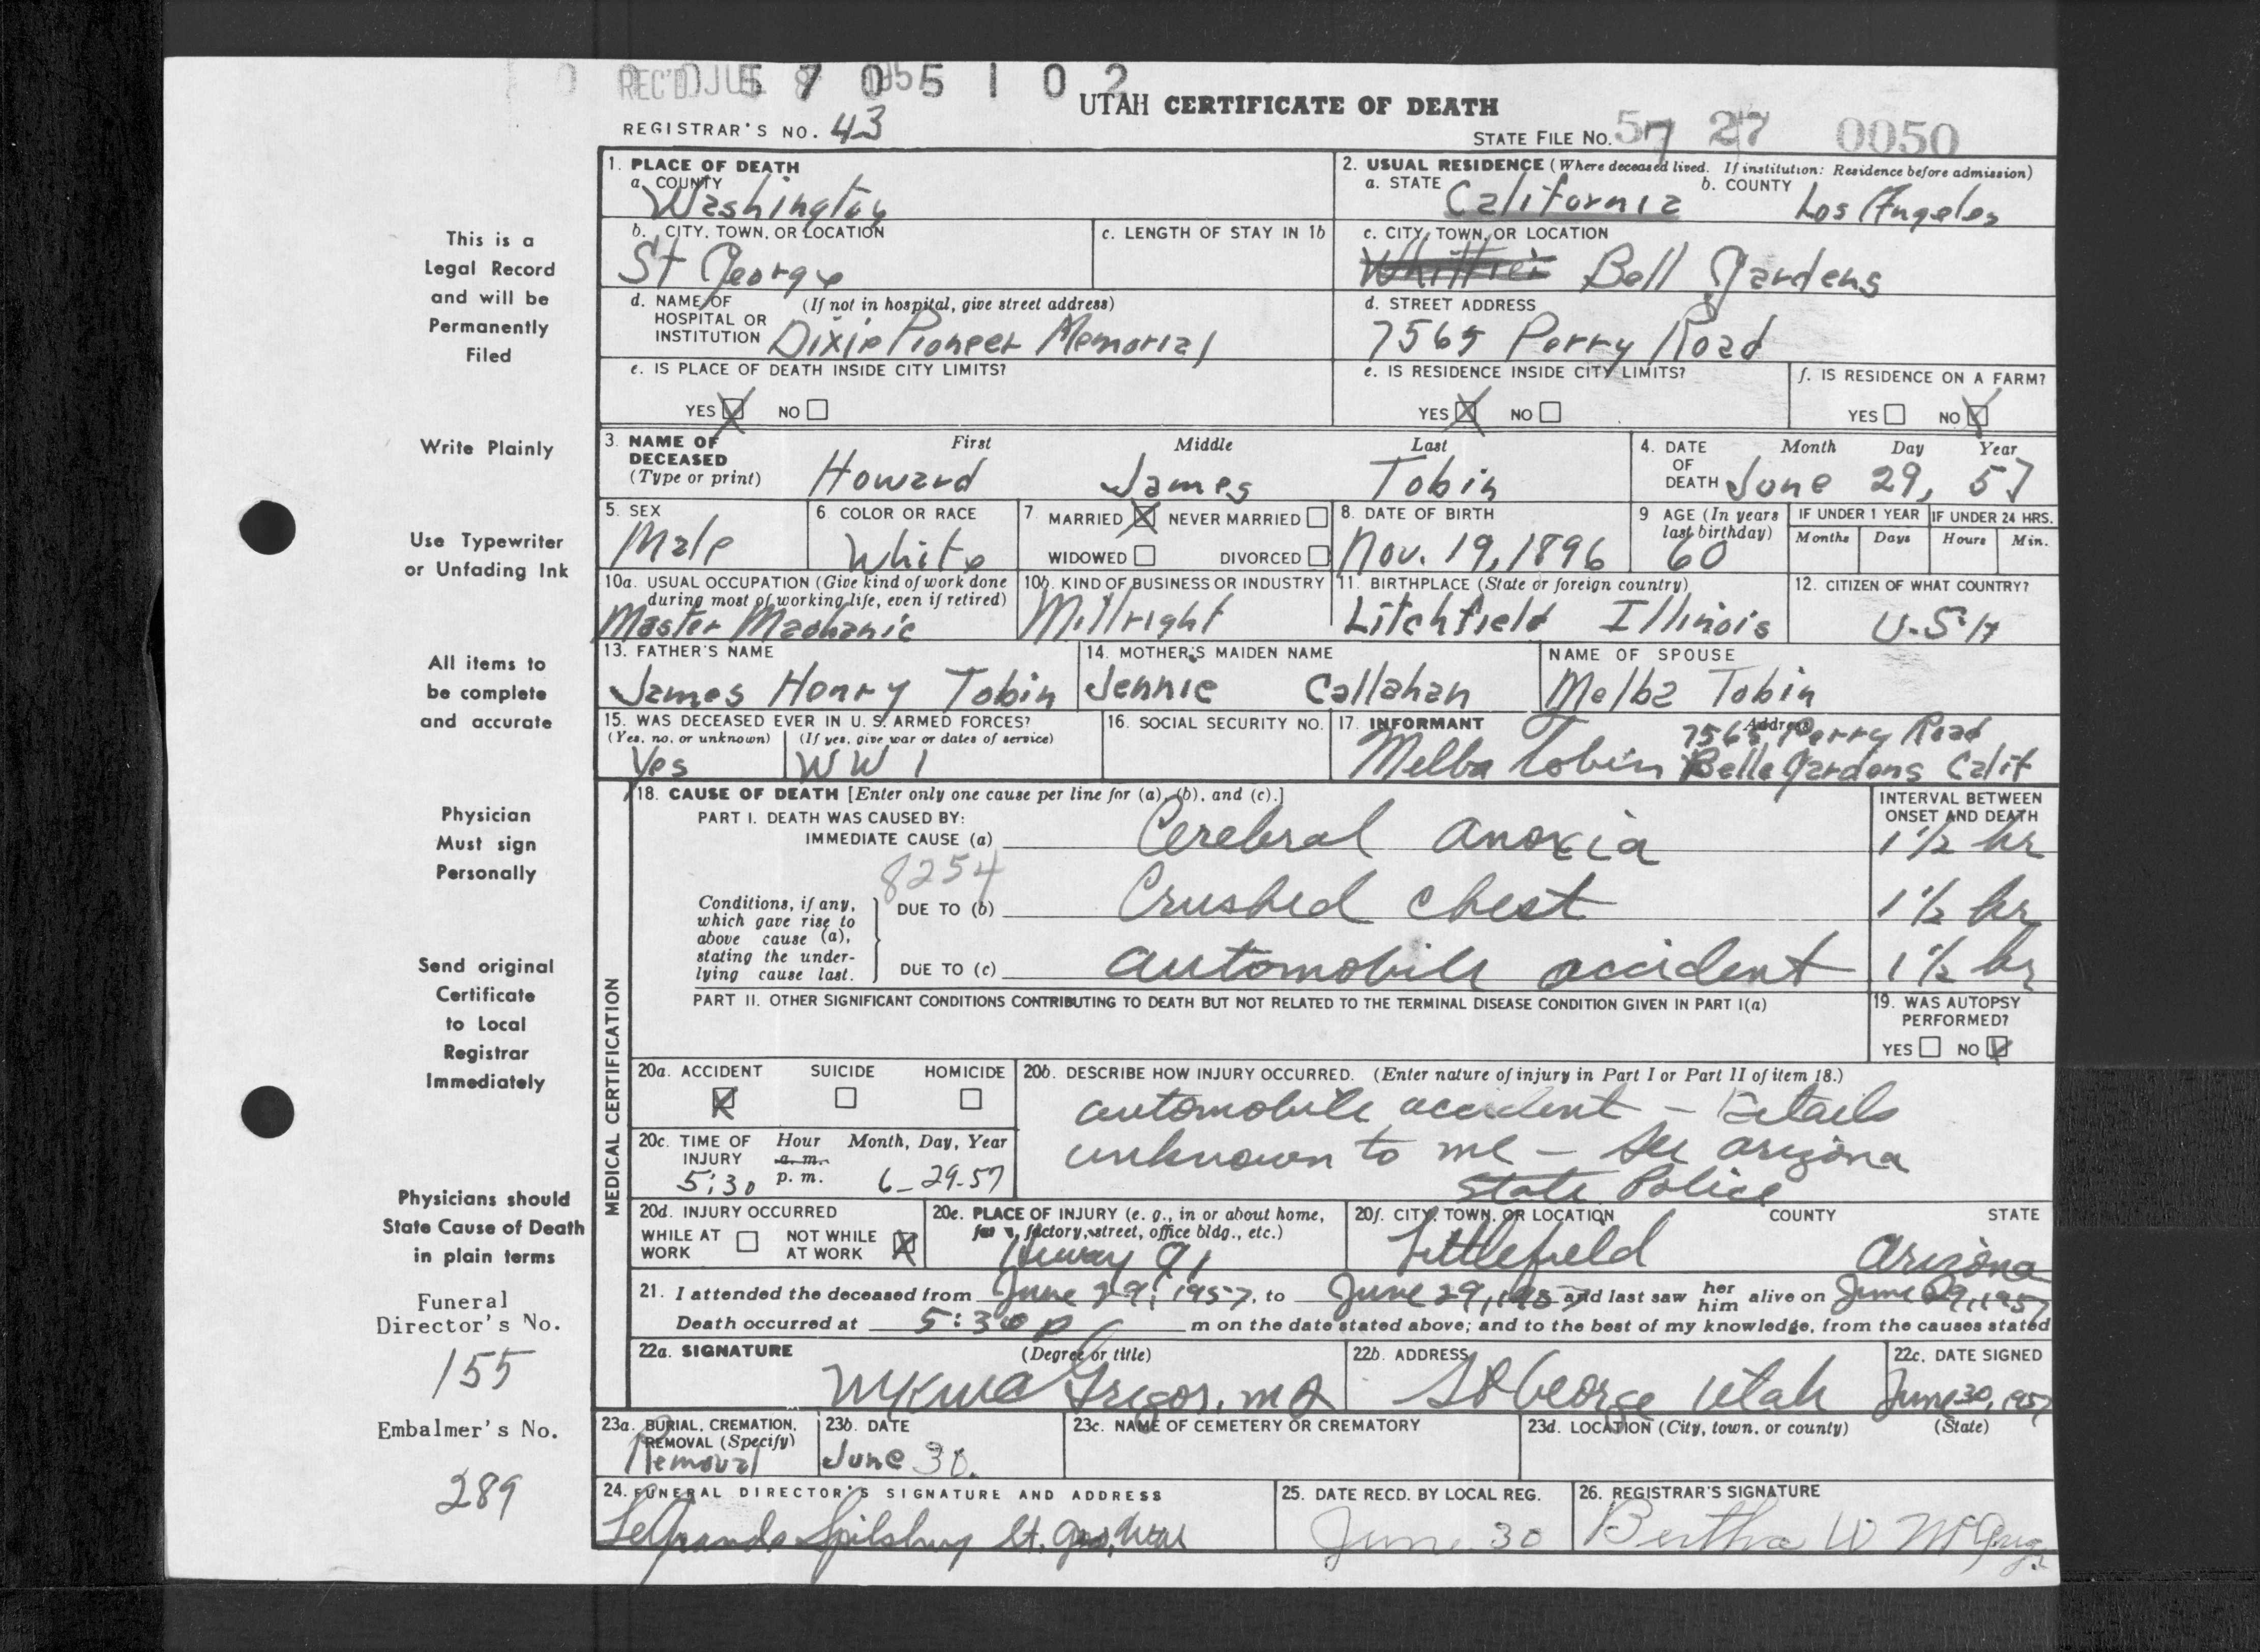 REC'D JUL 8
5 7 0 5 1 0 2
UTAH CERTIFICATE OF DEATH
REGISTRAR'S NO. 43
STATE FILE NO. 57 27 0050
1. PLACE OF DEATH
a. COUNTY
Washington
2. USUAL RESIDENCE (Where deceased lived. If institution: Residence before admission)
a. STATE California b. COUNTY Los Angeles
b. CITY, TOWN, OR LOCATION
St George
c. LENGTH OF STAY IN 1b
c. CITY, TOWN, OR LOCATION
Whittier Bell Gardens
d. NAME OF HOSPITAL OR INSTITUTION (If not in hospital, give street address)
Dixie Pioneer Memorial
d. STREET ADDRESS
7565 Perry Road
e. IS PLACE OF DEATH INSIDE CITY LIMITS?
YES X NO
e. IS RESIDENCE INSIDE CITY LIMITS?
YES X NO
f. IS RESIDENCE ON A FARM?
YES NO X
3. NAME OF DECEASED (Type or print)
First Middle Last
Howard James Tobin
4. DATE OF DEATH Month Day Year
June 29, 57
5. SEX
Male
6. COLOR OR RACE
White
7 MARRIED X NEVER MARRIED
WIDOWED DIVORCED
8. DATE OF BIRTH
Nov. 19, 1896
9 AGE (In years last birthday)
60
IF UNDER 1 YEAR
Months Days
IF UNDER 24 HRS.
Hours Min.
10a. USUAL OCCUPATION (Give kind of work done during most of working life, even if retired)
Master Mechanic
10b. KIND OF BUSINESS OR INDUSTRY
Millright
11. BIRTHPLACE (State or foreign country)
Litchfield Illinois
12. CITIZEN OF WHAT COUNTRY?
U.S.A
13. FATHER'S NAME
James Henry Tobin
14. MOTHER'S MAIDEN NAME
Jennie Callahan
NAME OF SPOUSE
Melba Tobin
15. WAS DECEASED EVER IN U. S. ARMED FORCES?
(Yes, no, or unknown) (If yes, give war or dates of service)
Yes WW 1
16. SOCIAL SECURITY NO.
17. INFORMANT Address
Melba Tobin 7565 Perry Road
Belle Gardens Calif
MEDICAL CERTIFICATION
18. CAUSE OF DEATH [Enter only one cause per line for (a), (b), and (c).]
INTERVAL BETWEEN ONSET AND DEATH
PART I. DEATH WAS CAUSED BY:
IMMEDIATE CAUSE (a) Cerebral anoxia 1 1/2 hr
8254
Conditions, if any, which gave rise to above cause (a), stating the underlying cause last.
DUE TO (b) Crushed chest 1 1/2 hr
DUE TO (c) automobile accident 1 1/2 hr
PART II. OTHER SIGNIFICANT CONDITIONS CONTRIBUTING TO DEATH BUT NOT RELATED TO THE TERMINAL DISEASE CONDITION GIVEN IN PART I(a)
19. WAS AUTOPSY PERFORMED?
YES NO X
20a. ACCIDENT SUICIDE HOMICIDE
X
20b. DESCRIBE HOW INJURY OCCURRED. (Enter nature of injury in Part I or Part II of item 18.)
automobile accident - Details
unknown to me - See arizona
State Police
20c. TIME OF INJURY Hour Month, Day, Year
a. m.
5:30 p. m. 6-29-57
20d. INJURY OCCURRED
WHILE AT WORK NOT WHILE AT WORK X
20e. PLACE OF INJURY (e. g., in or about home, farm, factory, street, office bldg., etc.)
Hiway 91
20f. CITY, TOWN, OR LOCATION COUNTY STATE
Littlefield Arizona
21. I attended the deceased from June 29, 1957, to June 29, 1957 and last saw her him alive on June 29, 1957
Death occurred at 5:30 p m on the date stated above; and to the best of my knowledge, from the causes stated
22a. SIGNATURE (Degree or title)
22b. ADDRESS
St George Utah
22c. DATE SIGNED
June 30, 1957
23a. BURIAL, CREMATION, REMOVAL (Specify)
Removal
23b. DATE
June 30.
23c. NAME OF CEMETERY OR CREMATORY
23d. LOCATION (City, town, or county) (State)
24. FUNERAL DIRECTOR'S SIGNATURE AND ADDRESS
Spilsbury St. Geo, Utah
25. DATE RECD. BY LOCAL REG.
June 30
26. REGISTRAR'S SIGNATURE
Bertha W
This is a
Legal Record
and will be
Permanently
Filed
Write Plainly
Use Typewriter
or Unfading Ink
All items to
be complete
and accurate
Physician
Must sign
Personally
Send original
Certificate
to Local
Registrar
Immediately
Physicians should
State Cause of Death
in plain terms
Funeral
Director's No.
155
Embalmer's No.
289